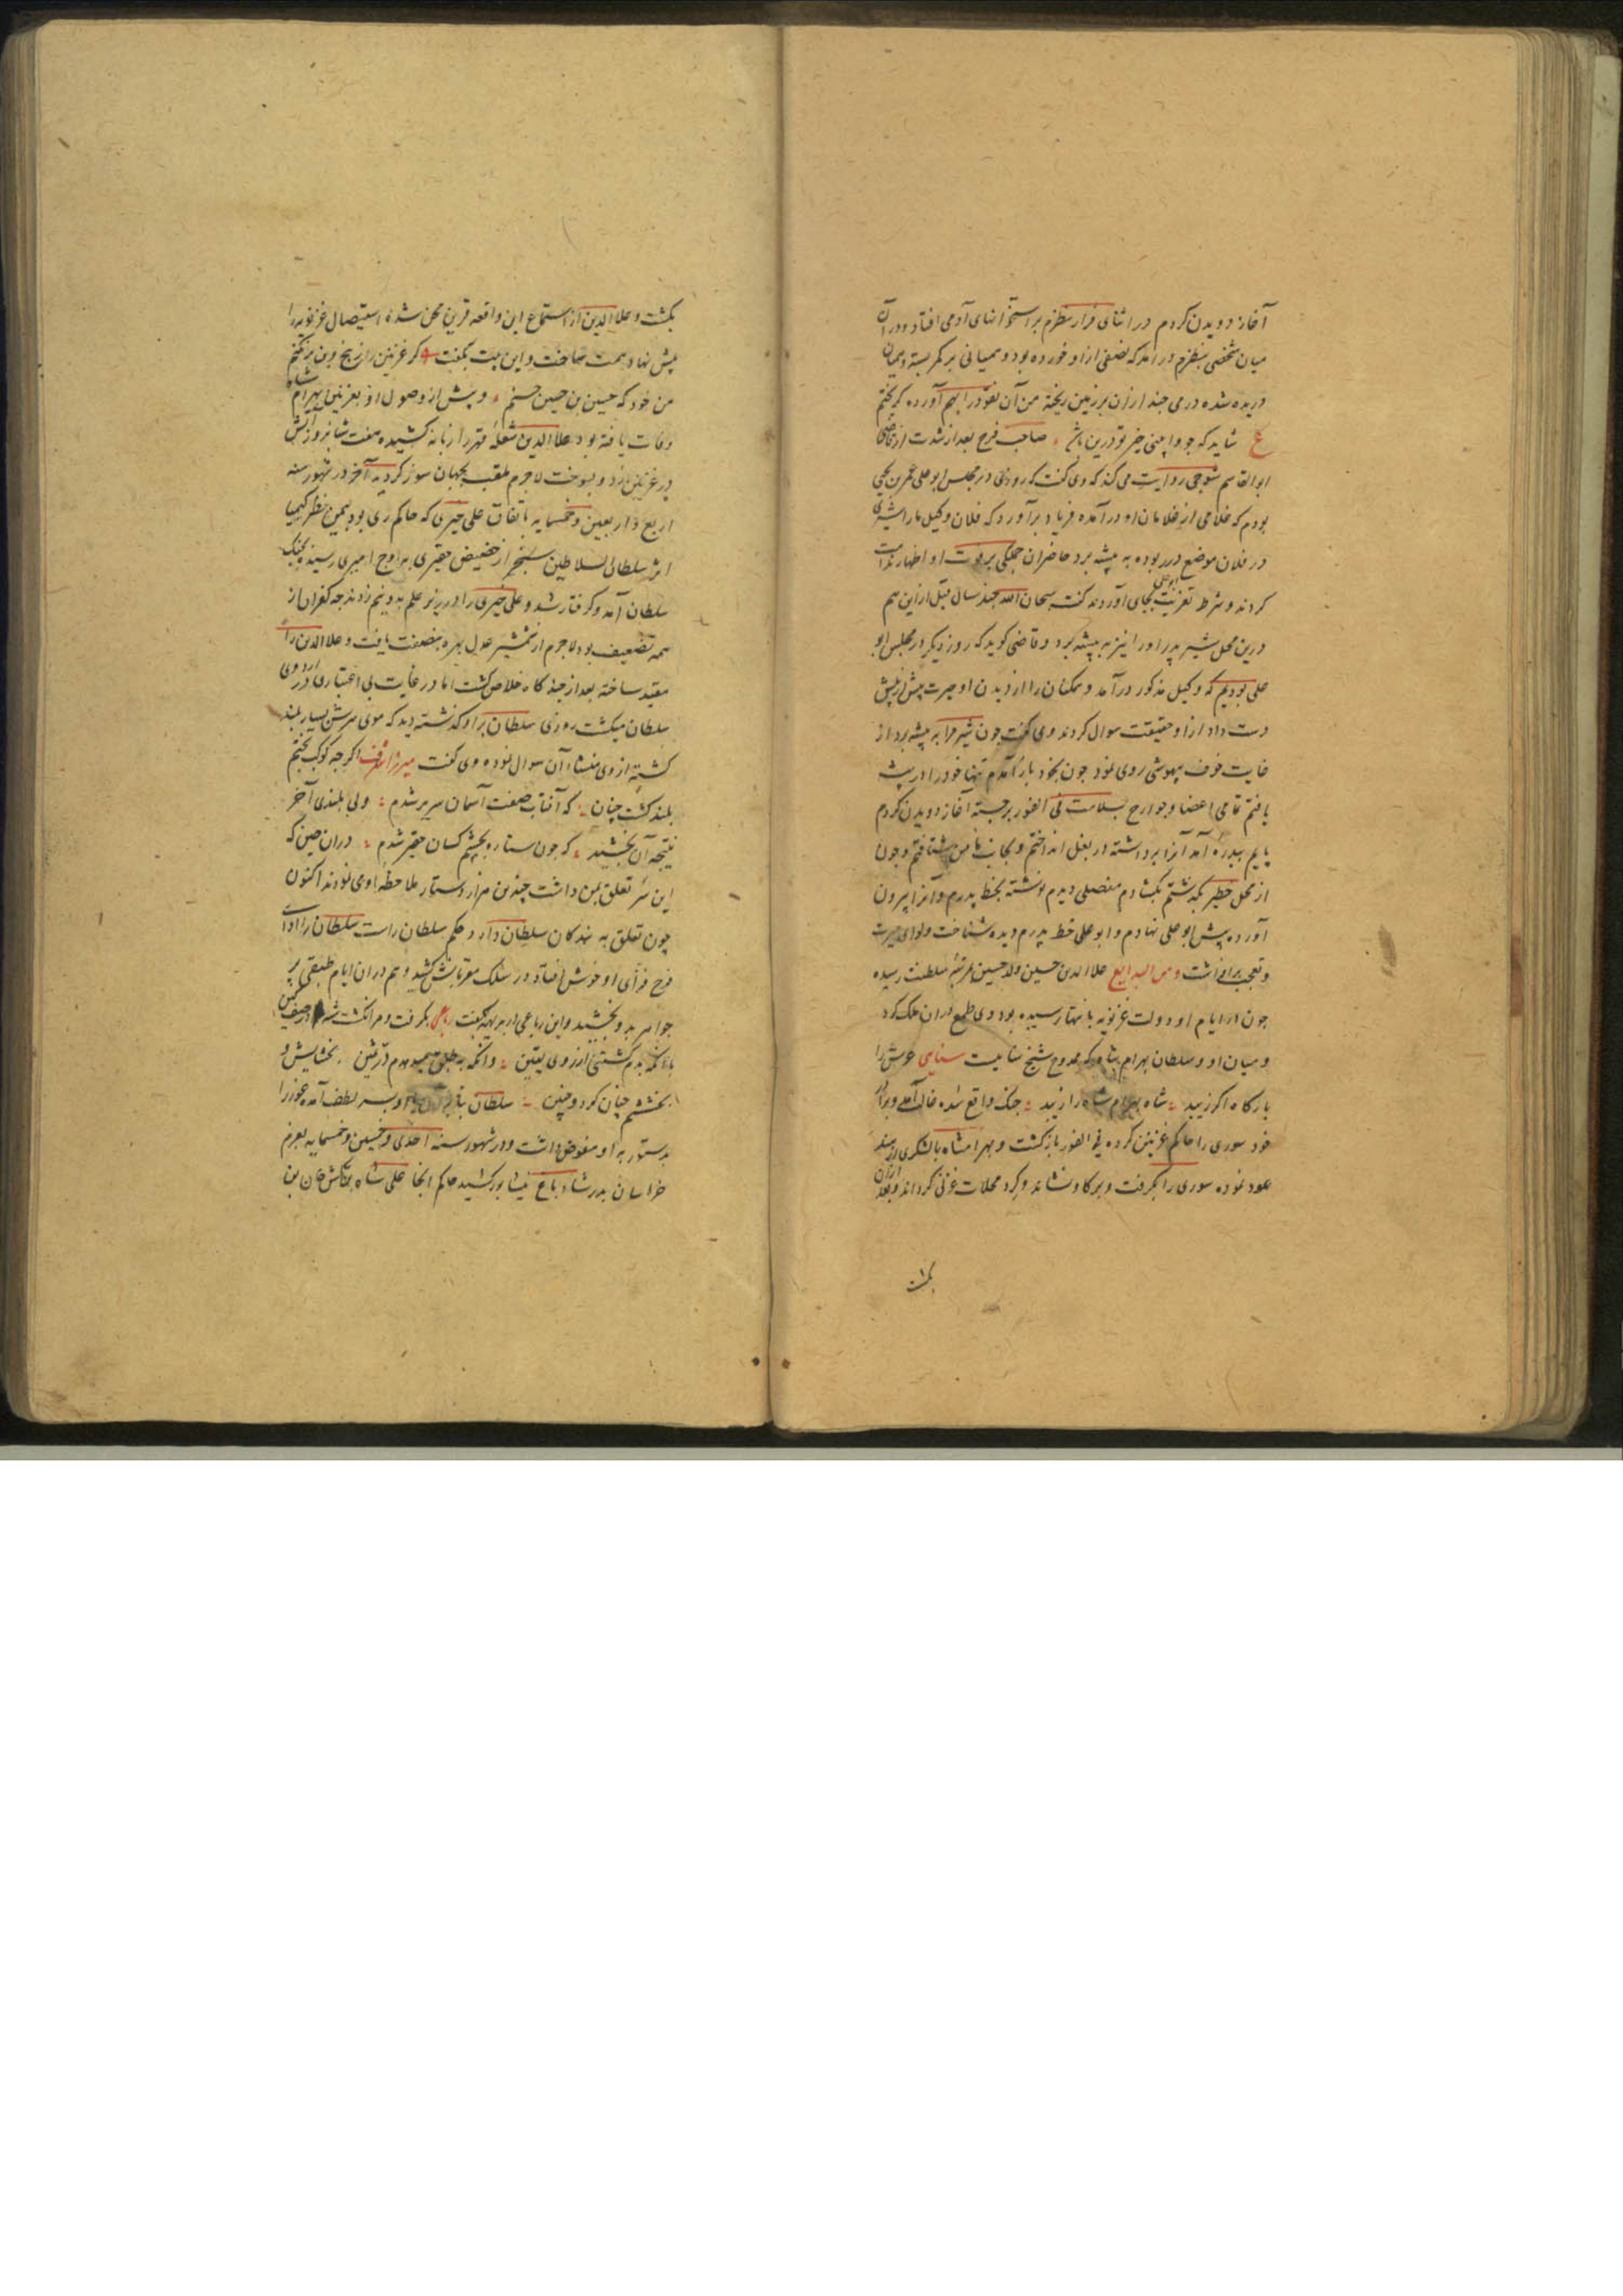 آغاز دویدن کردم در اثنای فرار نظرم بر استخوانهای آدمی افتاد و در آن
میان شخصی بنظرم در آمد که نصفی از او خورده بود و همیانی بر کمر بسته و همیان
دریده شده درمی چند از آن بر زمین ریخته من آن نقود را بهم آورده گریختم
ع شاید که چو وابینی خیر تو درین باشد صاحب فرج بعد از شدت از قاضی
ابوالقاسم تنوخی روایت می کند که وی گفت که روزی در مجلس ابوعلی عمر بن یحیی
بودم که غلامی از غلامان او در آمده فریاد برآورد که فلان وکیل ما را شیری
در فلان موضع در ربوده به بیشه برد حاضران جملگی بر فوت او اظهار ندامت
کردند و شرط تعزیت بجای آوردند ابوعلی گفت سبحان الله چند سال قبل ازین هم
درین محل شیر پدر او را نیز به بیشه برد و قاضی گوید که روز دیگر در مجلس ابو
علی بودیم که وکیل مذکور در آمد و همگنان را از دیدن او حیرت بیش از پیش
دست داد از او حقیقت سوال کردند وی گفت چون شیر مرا به بیشه برد از
غایت خوف بیهوشی روی نمود چون بخود باز آمدم تنها خود را در بیشه
یافتم تمامی اعضا و جوارح بسلامت فی الفور برجسته آغاز دویدن کردم
پایم ببدره آمد آنرا برداشته در بغل انداختم و بجانب مامن شتافتم و چون
از محل خطر بگذشتم بگشادم مفصلی دیدم نوشته بخط پدرم و آنرا بیرون
آورده پیش ابوعلی نهادم و ابوعلی خط پدرم دیده شناخت و لوای حیرت
و تعجب برافراشت و من البدایع علاالدین حسین ولد حسین مرتبه سلطنت رسیده
چون در ایام او دولت غزنویه بانتها رسیده بود وی طمع در آن ملک کرد
و میان او و سلطان بهرام شاه که ممدوح شیخ سناییست سنایی عرش را
بارگاه اگر زیبد شاه بهرام شاه را زیبد جنگ واقع شده غالب آمد و برادر
خود سوری را حاکم غزنین کرده فی الفور بازگشت و بهرامشاه بالشکری از هند
عود نموده سوری را بگرفت و بر گاو نشاند و گرد محلات غزنی گرداند و بعد از آن
بکشت
بکشت و علاالدین از استماع این واقعه قرین محن شده استیصال غزنویه را
پیش نهاد همت ساخت و این بیت بگفت گر غزنین را ز بیخ و بن برنکنم
من خود که حسین بن حسین حسنم و پیش از وصول او بغزنین بهرام شاه
وفات یافته بود علاالدین شعله قهر را زبانه کشیده هفت شبانروز آتش
در غزنین زد و بسوخت لاجرم ملقب بجهان سوز گردید آخر در شهور سنه
اربع و اربعین و خمسمایه باتفاق علی چتری که حاکم ری بود بیمن نظر کیمیا
اثر سلطان السلاطین سنجر از حضیض حقیری به اوج امیری رسیده بجنگ
سلطان آمد و گرفتار شد و علی چتری را در زیر علم به دو نیم زدند چه کفران از
همه تضعیف بود لاجرم از شمشیر عدل بهره بنصفت یافت و علاالدین را
مقید ساخته بعد از چندگاه خلاص گشت اما در غایت بی اعتباری در اردوی
سلطان میگشت روزی سلطان بر او گذشته دید که موی سرش بسیار بلند
گشته از وی منشاء آن سوال نموده وی گفت میرزا اشرف اگر چه کوکب بختم
بلند گشت چنان که آفتاب صفت آسمان سریر شدم ولی بلندی آخر
نتیجه آن بخشید که چون ستاره بچشم کسان حقیر شدم در آن حین که
این سر تعلق بمن داشت چندین هزار دستار ملاحظه او می نمودند اکنون
چون تعلق به بندگان سلطان دارد حکم سلطان راست سلطان را ادای
فرح فزای او خوش افتاد در سلک مقربانش کشید و هم در آن ایام طبقی پر
جواهر بدو بخشید و این رباعی را بدیهه گفت رباعی بگرفت و مرا نکشت شه در صف کین
با آنکه بدم کشتنی از روی یقین وانگه به طبق میدهدم در ثمین بخشایش و
بخششم چنان کرد و چنین سلطان با او بر سر لطف آمده غور را
بدستور به او مفوض داشت و در شهور سنه احدی و خمسین و خمسمایه بعزم
خراسان بدر شادباغ نیشابور کشید حاکم آنجا علی شاه بن تکش خان بن